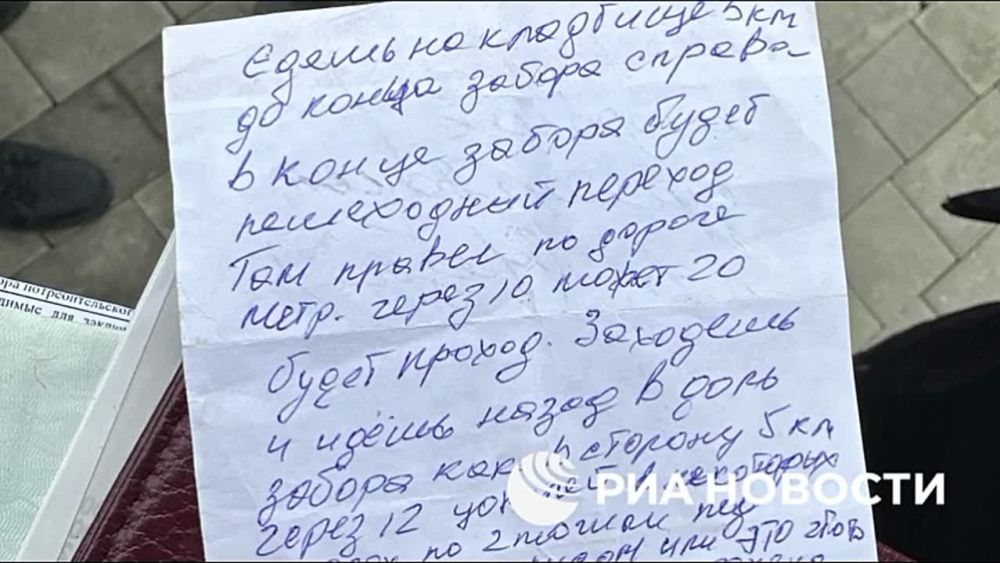 Едешь на кладбище 5 км
до конца забора справа
в конце забора будет
пешеходный переход
Там правел по дороге
метр. через 10 может 20
будет проход. Заходешь
и идёшь назад в доль
забора как в сторону 5 км
через 12 некоторых
по 2
или это
РИА НОВОСТИ
ора потребительског
димые для заклю